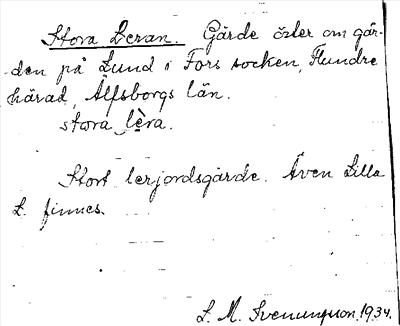 Stora Leran. Gärde öster om går-
den på Lund i Fors socken, Flundre
härad, Älfsborgs län.
stora lèra.
Stort lerjordsgärde. Även Lilla
L. finnes.
L. M. Svenungsson. 1934.